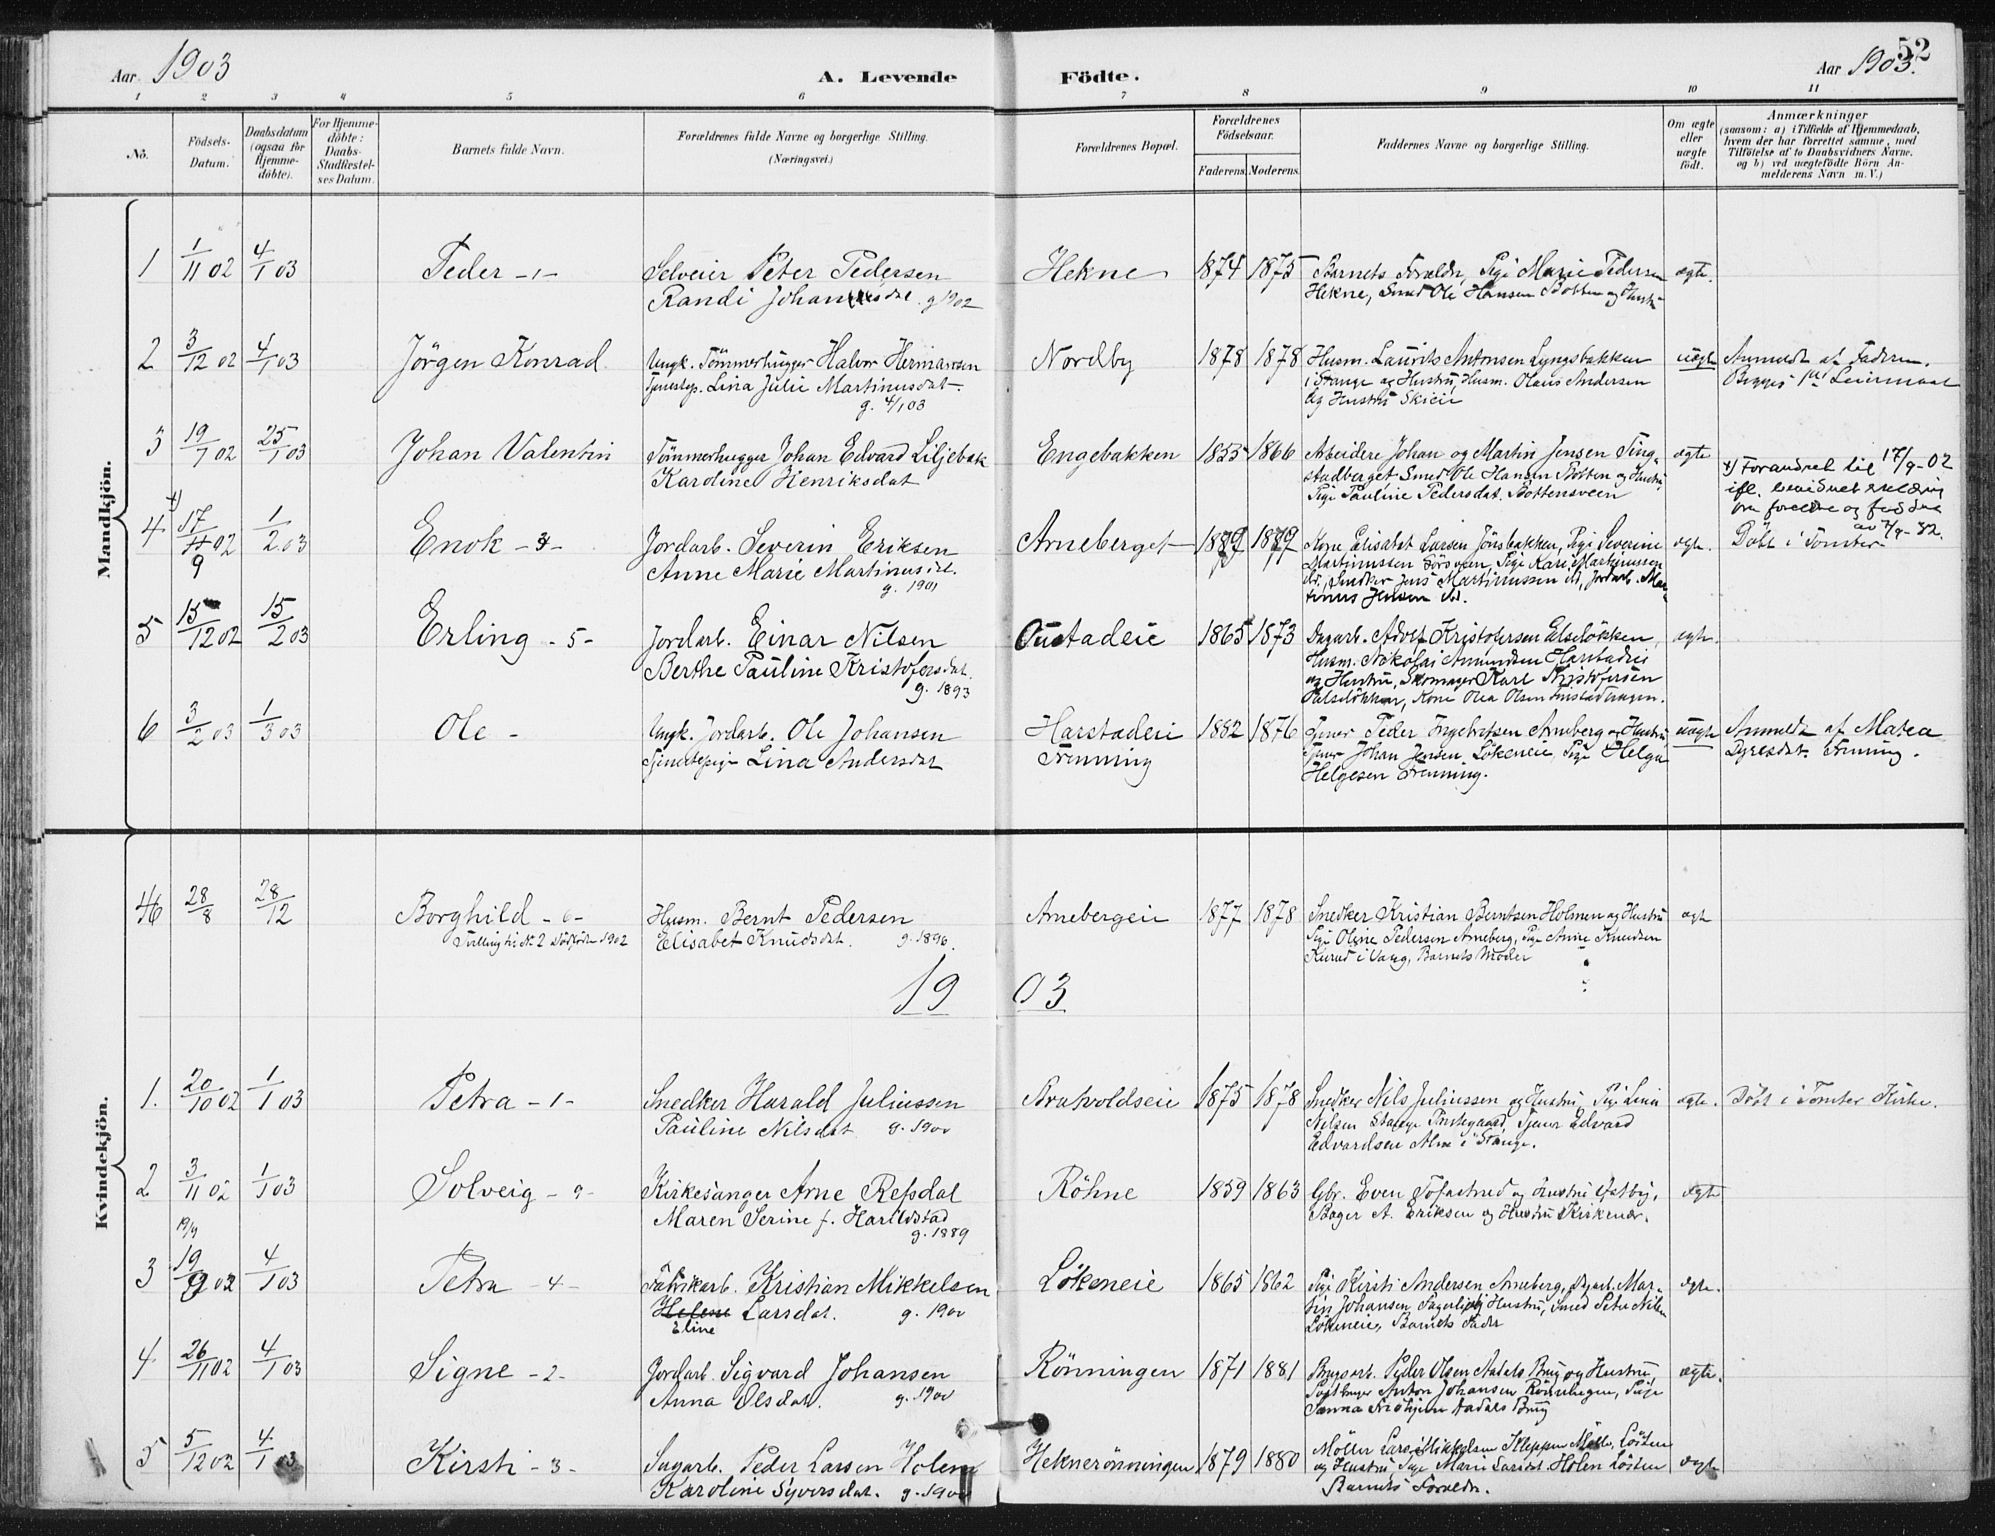 52
Aar 1903
A. Levende Födte.
Aar 1903.
1 2 3 4 5 6 7 8 9 10 11
No.
Födsels-Datum.
Daabsdatum (ogsaa for Hjemme-döbte).
For Hjemme-döbte: Daabs-Stadfæstel-ses Datum.
Barnets fulde Navn.
Forældrenes fulde Navne og borgerlige Stilling.
(Næringsvei.)
Forældrenes Bopæl.
Forældrenes Födselsaar.
Faderens. Moderens.
Faddernes Navne og borgerlige Stilling.
Om ægte eller uægte födt.
Anmærkninger
(saasom: a) i Tilfælde af Hjemmedaab,
hvem der har forrettet samme, med
Tilföielse af to Daabsvidners Navne.
og b) ved uægtefödte Börn An-
melderens Navn m. V.)
Mandkjön.
1 1/11 02 4/1 03 Peder -1- Selveier Peter Pedersen Hekne 1874 1875 Barnets Forældr, Pige Marie Pedersen ægte.
Randi Johannesdat. g 1902 Hekne, Smed Ole Hansen Botten og Hustr
2 3/12 02 4/1 03 Jörgen Konrad Ungk. Tömmerhugger Halvor Hermansen Nordby 1878 1878 Husm. Laurits Antonsen Lyngsbakken uægte Anmeldt af Faderen.
Tjenestep. Lina Julie Martinusdat. i Stange og Hustru, Husm. Olaus Andersen Begges 1ste Leiermaal
g. 4/1 03 og Hustru Skieie
3 19/1 02 25/1 03 Johan Valentin Tömmerhugger Johan Edvard Liljebak Engebakken 1855 1866 Arbeidere Johan og Martin Jensen Ting- ægte
Karoline Henriksdat stadberget Smed Ole Hansen Botten og Hustru,
Pige Pauline Pedersdat. Bottensveen
x) Forandret til 17/9-02
ifl.
av 7/9-32.
4 x) 17/11 02 9 1/2 03 Enok -3- Jordarb. Severin Eriksen Arneberget 1879 1879 Kone Elisabet Larsen Jönsbakken, Pige Severine ægte. Döbt i Tomter
Anne Marie Martinusdat. Martinussen Pige Kari Martinussen
g. 1901 sd., Snedker Jens Martinussen sd, Jordarb. Mar-
tinus Hansen sd.
5 15/12 02 15/2 03 Erling -5- Jordarb. Einar Nilsen Oustadeie 1865 1873 Dagarb. Adolf Kristofersen ægte.
Berthe Pauline Kristofersdat. Husm. Nikolai Amundsen Harstadeie
g. 1893 og Hustru, Skomager Karl Kristofersen
Kone Olea Olsen
6 3/2 03 1/3 03 Ole - Ungk. Jordarb. Ole Johansen Harstadeie 1882 1876 Tjener Peder Ingebretsen Arneberg og Hustru, uægte Anmeldt af Matea
Tjenestepige Lina Andersdat Frenning Tjener Johan Jensen Lökeneie, Pige Helga Dyresdat. Frenning.
Helgesen Frenning.
Kvindekjön.
46 28/8 28/12 Borghild -6- Husm. Bernt Pedersen Arnebergeie 1877 1878 Snedker Kristian Berntsen Holmen og Hustru ægte
Tvilling til No 2 Dödfödte 1902 Elisabet Knudsdat. g. 1896. Pige Oline Pedersen Arneberg, Pige Anne Knudsen
i Vang, Barnets Moder
1903
1. 20/10 02 1/1 03 Petra -1- Snedker Harald Juliussen Bratvoldseie 1875 1878 Snedker Nils Juliussen og Hustru, Pige Lina ægte. Döbt i Tomter Kirke.
Pauline Nilsdat g. 1900 Nilsen Stange Prestegaard, Tjener Edvard
Edvardsen Alm i Stange.
2 3/11 02 1/1 03 Solveig -9- Kirkesanger Arne Refsdal Röhne 1859 1863 Gbr. Even Tofastrud og Hustru Østby, ægte
Maren Serine f. Harildstad Bager A. Eriksen og Hustru Kirkenær.
g. 1889
19/9
3 19/9 02 4/1 03 Petra -4- Fabrikarb. Kristian Mikkelsen Lökeneie 1865 1862 Pige Kirsti Andersen Arneberg, Dgarb. Mar- ægte.
Helene Larsdat. g. 1900 tin Johansen Fagerli og Hustru, Smed Peter Nilsen
Eline Lökeneie, Barnets Fader
4 26/11 02 4/1 03 Signe -2- Jordarb. Sigvard Johansen Rönningen 1871 1881 Brugsarb. Peder Olsen Aadals Brug og Hustru, ægte.
Anna Olsdat. g. 1900 Anton Johansen Rönningen, Pige
Aadals Brug
5 5/12 02 4/1 03 Kirsti -3- Sagarb. Peder Larsen Holen Heknerönningen 1879 1880 Möller Lars Mikkelsen Kleppen Mölle, Löiten ægte
Karoline Syversdat. g. 1900 og Hustru, Pige Marie Larsdat. Holen Löiten
Barnets Forældr.